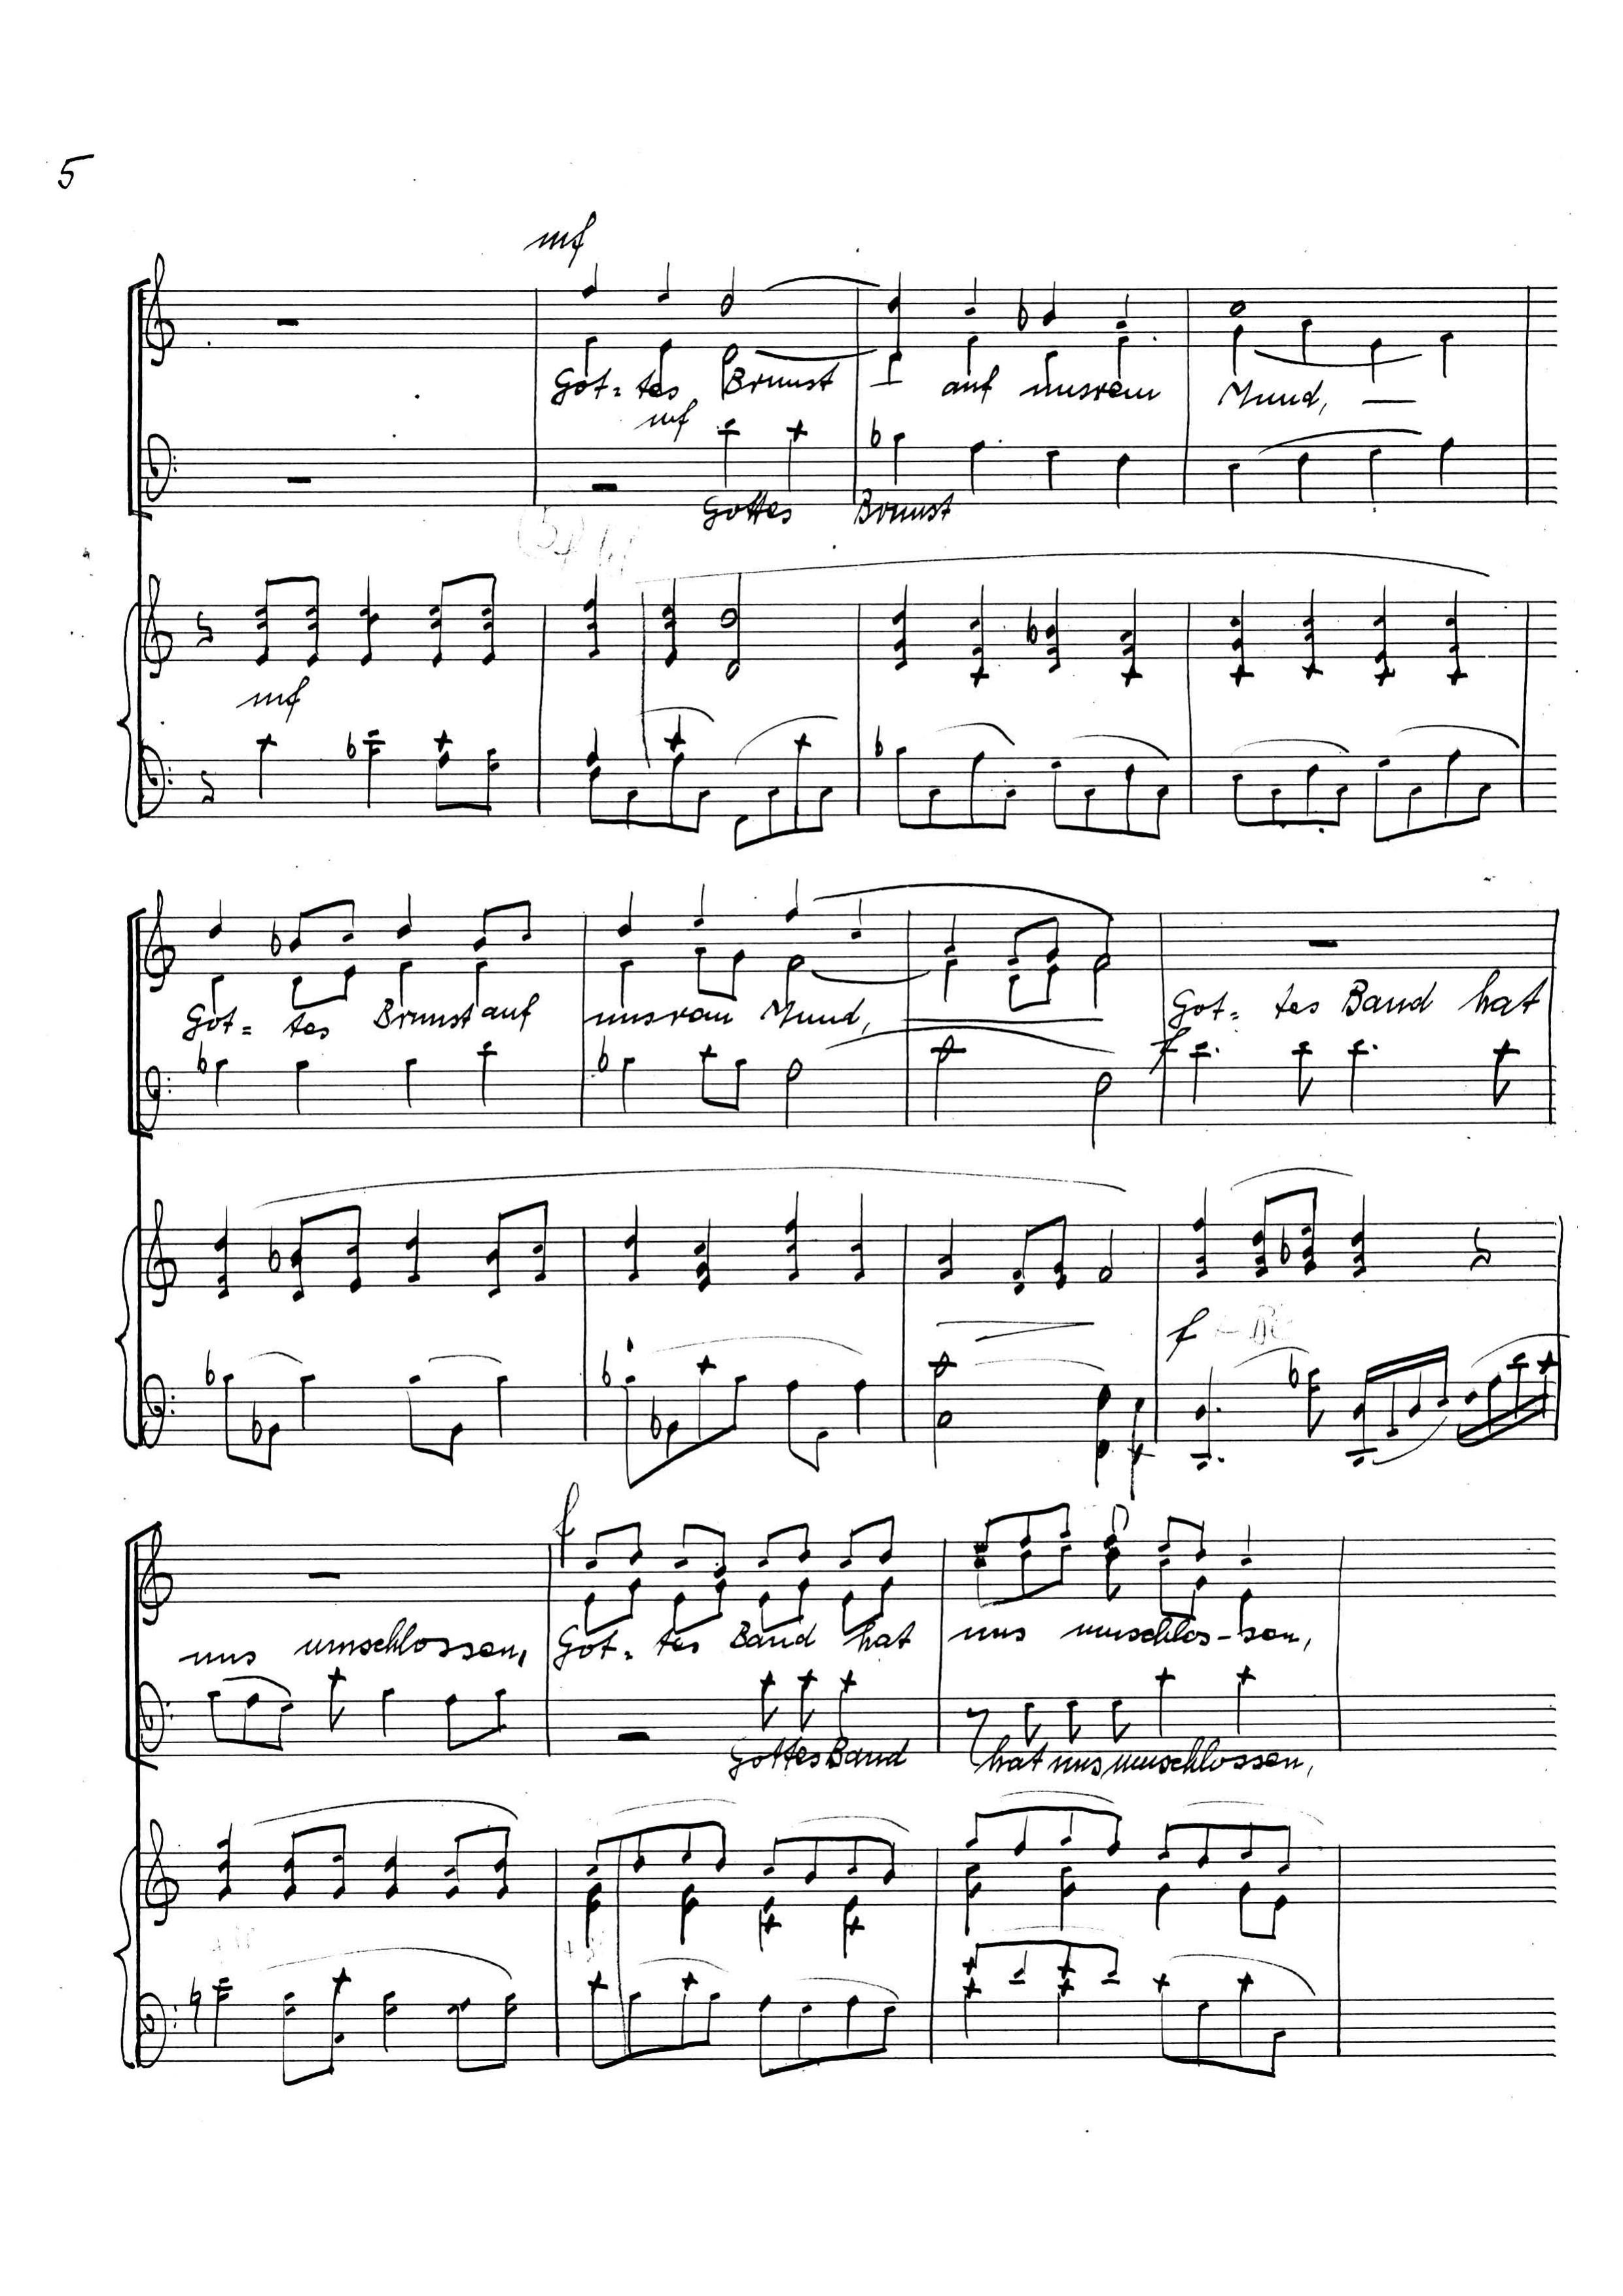 5
mf
Got = tes Brunst auf unsrem Mund,
mf
Gottes Brunst
mf
Got = tes Brunst auf unsrem Mund, Got = tes Band hat
f
f
f
uns umschlossen, Got = tes Band hat uns umschlos - sen,
Gottes Band hat uns umschlossen,